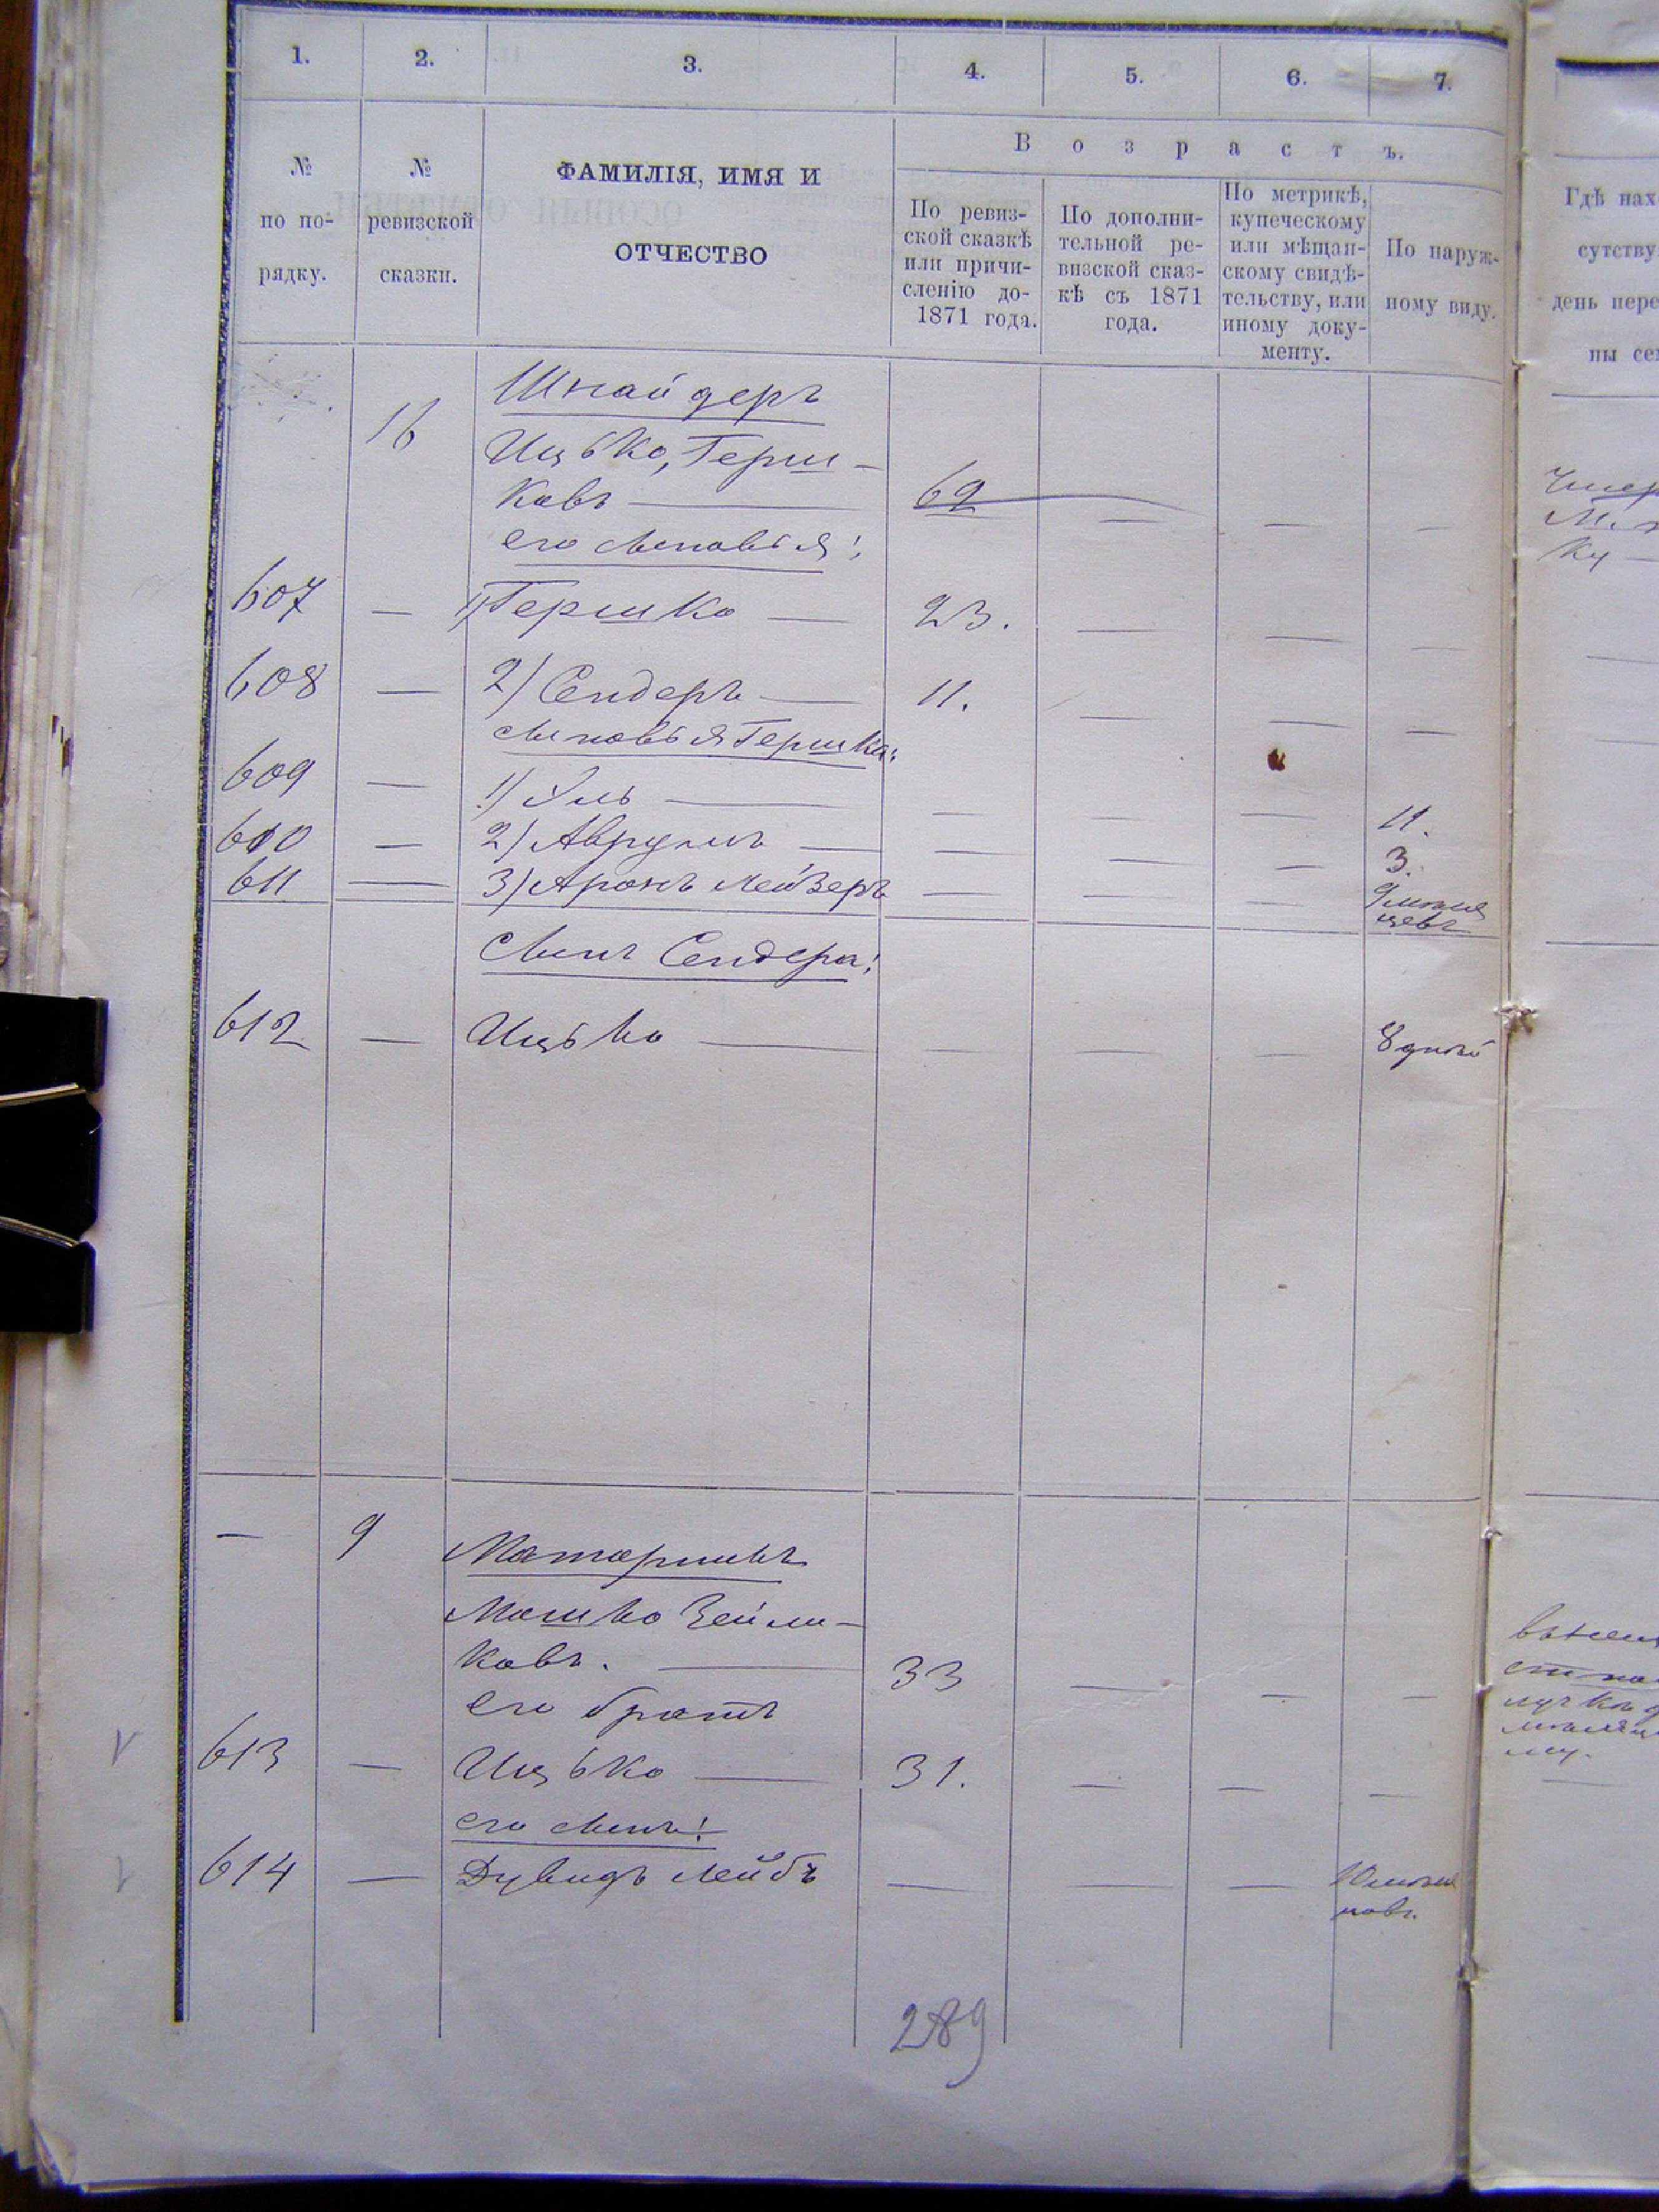 1. 2. 3. 4. 5. 6. 7.
Возрастъ.
№
по по-
рядку.
№
ревизской
сказки.
ФАМИЛІЯ, ИМЯ И
ОТЧЕСТВО
По ревиз-
ской сказкѣ
или причи-
сленію до-
1871 года.
По дополни-
тельной ре-
визской сказ-
кѣ съ 1871
года.
По метрикѣ,
купеческому
или мѣщан-
скому свидѣ-
тельству, или
иному доку-
менту.
По наруж-
ному виду.
Гдѣ нах
сутству
день пере
ны се
Шнайдеръ
16 Ицько, Герш-
ковъ — 69 — — —
его сыновья:
607 — 1) Гершко — 23. — — —
608 — 2) Сендеръ — 11. — — —
сыновья Гершка:
609 — 1) — — — — 11.
610 — 2) Аврумъ — — — — 3.
611 — 3) Аронъ Лейзеръ — — — 9 мѣся
цевъ
Сынъ Сендера:
612 — Ицько — — — — 8 дней
— 9
Мошко Зейли-
ковъ. — 33 — — —
его братъ
613 — Ицько — 31. — — —
его сынъ:
614 — Дувидъ Лейбъ — — —
289